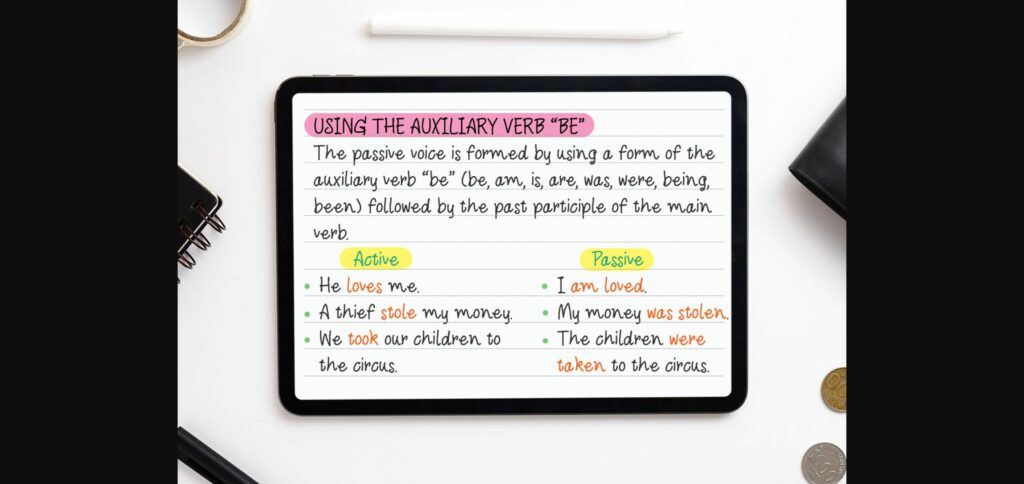 USING THE AUXILIARY VERB “BE”
The passive voice is formed by using a form of the
auxiliary verb “be” (be, am, is, are, was, were, being,
been) followed by the past participle of the main
verb.
Active
Passive
• He loves me.
• I am loved.
• A thief stole my money.
• My money was stolen.
• We took our children to
the circus.
• The children were
taken to the circus.